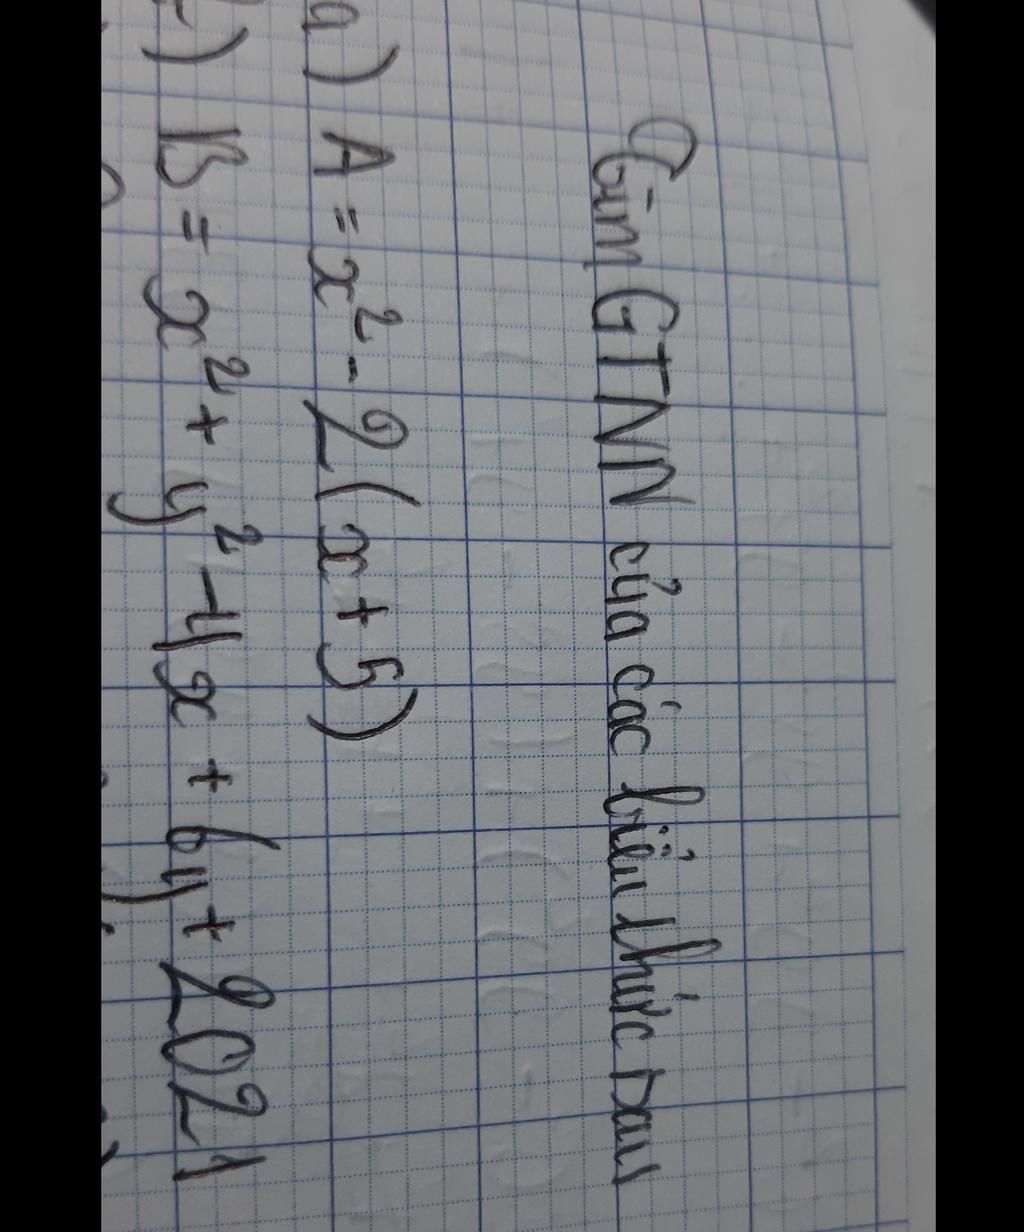 Tìm GTNN của các biểu thức sau
a) A = x² - 2(x + 5)
) B = x² + y² - 4x + 6y + 2021